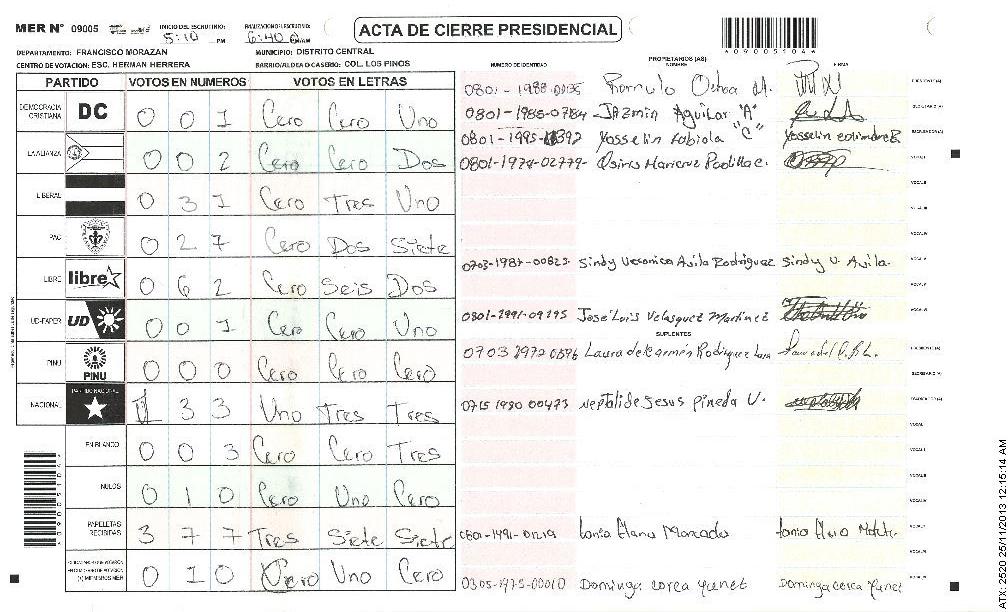 MER Nº 09005
INICIO DEL ESCRUTINIO: 5:10 PM
FINALIZACION ESCRUTINIO: 6:40 AM
ACTA DE CIERRE PRESIDENCIAL
DEPARTAMENTO: FRANCISCO MORAZAN MUNICIPIO: DISTRITO CENTRAL
CENTRO DE VOTACION: ESC. HERMAN HERRERA BARRIO/ALDEA O CASERIO: COL. LOS PINOS
PARTIDO VOTOS EN NUMEROS VOTOS EN LETRAS
DEMOCRACIA CRISTIANA DC 0 0 1 Cero Cero Uno
LA ALIANZA 0 0 2 Cero Cero Dos
LIBERAL 0 3 1 Cero Tres Uno
PAC 0 2 7 Cero Dos Siete
LIBRE libre 0 6 2 Cero Seis Dos
UD-FAPER UD 0 0 1 Cero Cero Uno
PINU PINU 0 0 0 Cero Cero Cero
NACIONAL PARTIDO NACIONAL 1 3 3 Uno Tres Tres
EN BLANCO 0 0 3 Cero Cero Tres
NULOS 0 1 0 Cero Uno Cero
PAPELETAS RECIBIDAS 3 7 7 Tres Siete Siete
(*) MIEMBROS MER 0 1 0 Cero Uno Cero
PROPIETARIOS (AS)
NUMERO DE IDENTIDAD NOMBRE FIRMA
Romulo Ochoa M. PRESIDENTE(A)
0801-1985-07184 JAzmin Aguilar "A" SECRETARIO(A)
Yosselin Fabiola "C" ESCRUTADOR(A)
0801-1974-02779 Osiris Maricruz Padilla c. VOCAL I
VOCAL II
VOCAL III
VOCAL IV
0703-1987-00823 Sindy Veronica Avila Rodriguez Sindy V. Avila. VOCAL V
0801-1991-09195 José Luis Velasquez Martinez
SUPLENTES
0703 1972 00596 Laura del Carmen Rodriguez PRESIDENTE(A)
SECRETARIO(A)
0715 1980 00423 Neptali de Jesus Pineda V. ESCRUTADOR(A)
VOCAL I
VOCAL II
VOCAL III
0801-1991-01219
0305-1975-00010 Domingo corea Yunet Domingo corea Yunet
09005104
ATX 2520 25/11/2013 12:15:14 AM